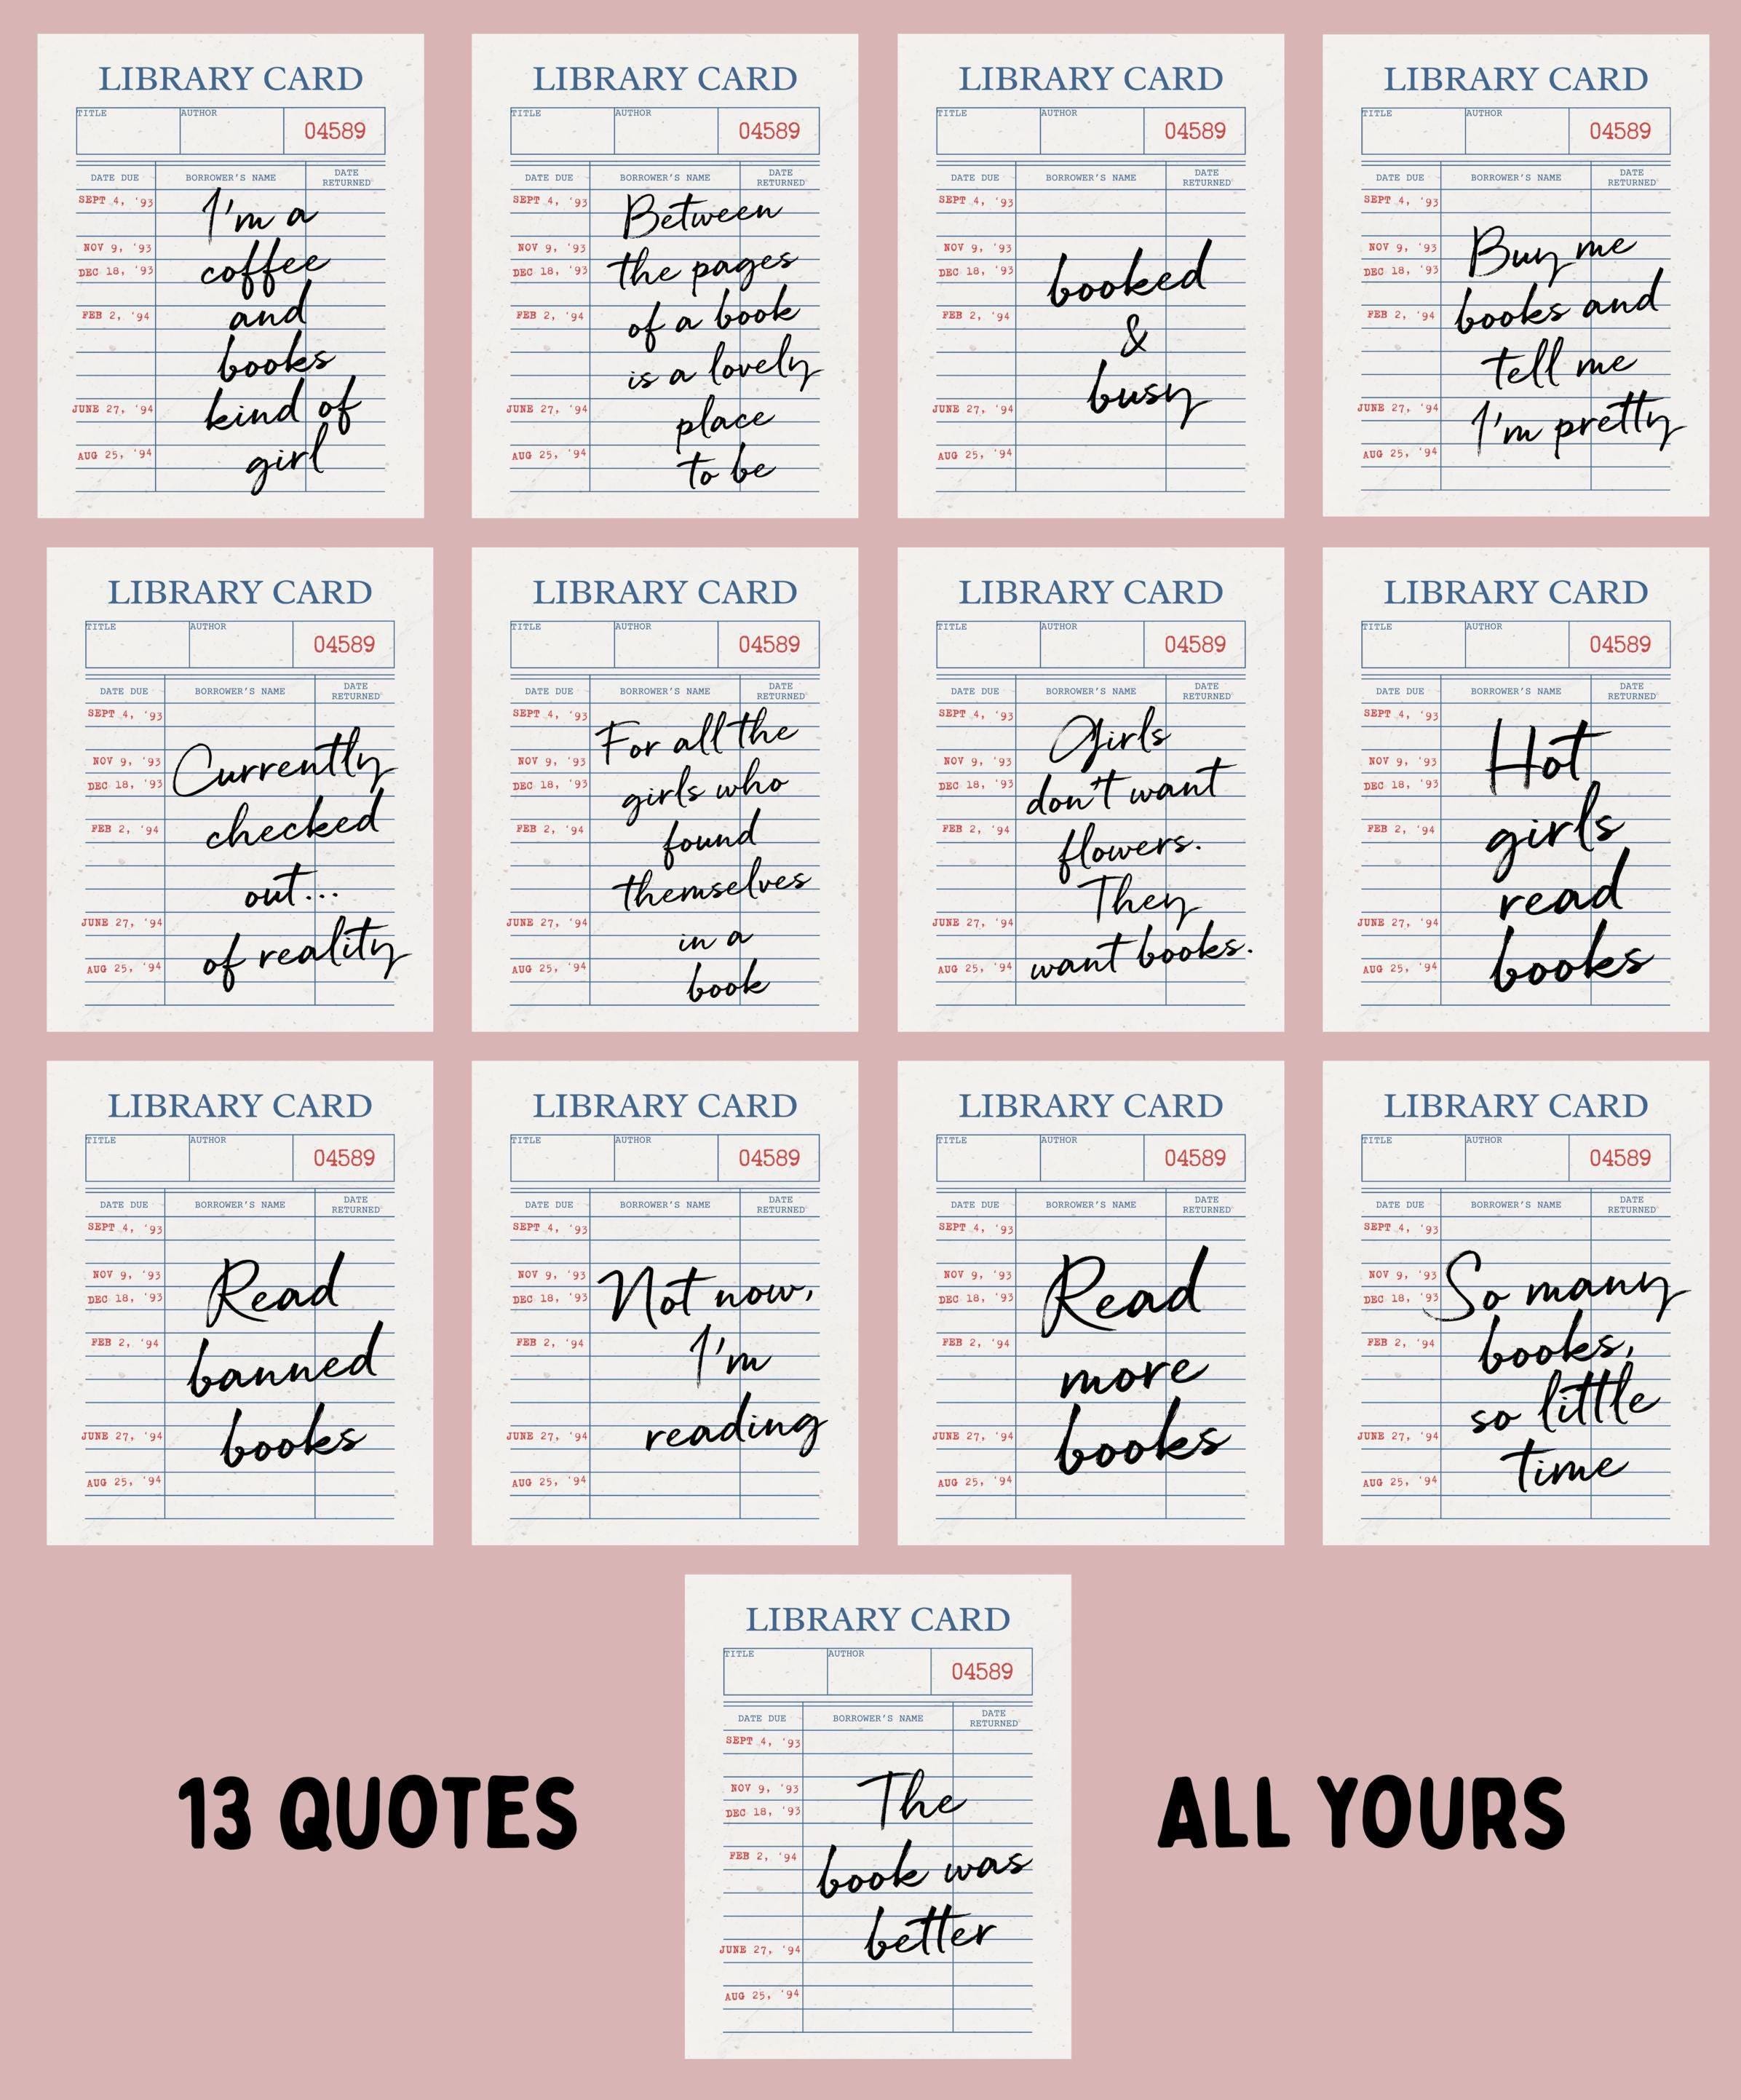 LIBRARY CARD
TITLE AUTHOR 04589
DATE DUE BORROWER'S NAME DATE RETURNED
SEPT 4, '93
NOV 9, '93
DEC 18, '93
FEB 2, '94
JUNE 27, '94
AUG 25, '94
I'm a
coffee
and
books
kind of
girl
LIBRARY CARD
TITLE AUTHOR 04589
DATE DUE BORROWER'S NAME DATE RETURNED
SEPT 4, '93
NOV 9, '93
DEC 18, '93
FEB 2, '94
JUNE 27, '94
AUG 25, '94
Between
the pages
of a book
is a lovely
place
to be
LIBRARY CARD
TITLE AUTHOR 04589
DATE DUE BORROWER'S NAME DATE RETURNED
SEPT 4, '93
NOV 9, '93
DEC 18, '93
FEB 2, '94
JUNE 27, '94
AUG 25, '94
booked
&
busy
LIBRARY CARD
TITLE AUTHOR 04589
DATE DUE BORROWER'S NAME DATE RETURNED
SEPT 4, '93
NOV 9, '93
DEC 18, '93
FEB 2, '94
JUNE 27, '94
AUG 25, '94
Buy me
books and
tell me
I'm pretty
LIBRARY CARD
TITLE AUTHOR 04589
DATE DUE BORROWER'S NAME DATE RETURNED
SEPT 4, '93
NOV 9, '93
DEC 18, '93
FEB 2, '94
JUNE 27, '94
AUG 25, '94
Currently
checked
out...
of reality
LIBRARY CARD
TITLE AUTHOR 04589
DATE DUE BORROWER'S NAME DATE RETURNED
SEPT 4, '93
NOV 9, '93
DEC 18, '93
FEB 2, '94
JUNE 27, '94
AUG 25, '94
For all the
girls who
found
themselves
in a
book
LIBRARY CARD
TITLE AUTHOR 04589
DATE DUE BORROWER'S NAME DATE RETURNED
SEPT 4, '93
NOV 9, '93
DEC 18, '93
FEB 2, '94
JUNE 27, '94
AUG 25, '94
Girls
don't want
flowers.
They
want books.
LIBRARY CARD
TITLE AUTHOR 04589
DATE DUE BORROWER'S NAME DATE RETURNED
SEPT 4, '93
NOV 9, '93
DEC 18, '93
FEB 2, '94
JUNE 27, '94
AUG 25, '94
Hot
girls
read
books
LIBRARY CARD
TITLE AUTHOR 04589
DATE DUE BORROWER'S NAME DATE RETURNED
SEPT 4, '93
NOV 9, '93
DEC 18, '93
FEB 2, '94
JUNE 27, '94
AUG 25, '94
Read
banned
books
LIBRARY CARD
TITLE AUTHOR 04589
DATE DUE BORROWER'S NAME DATE RETURNED
SEPT 4, '93
NOV 9, '93
DEC 18, '93
FEB 2, '94
JUNE 27, '94
AUG 25, '94
Not now,
I'm
reading
LIBRARY CARD
TITLE AUTHOR 04589
DATE DUE BORROWER'S NAME DATE RETURNED
SEPT 4, '93
NOV 9, '93
DEC 18, '93
FEB 2, '94
JUNE 27, '94
AUG 25, '94
Read
more
books
LIBRARY CARD
TITLE AUTHOR 04589
DATE DUE BORROWER'S NAME DATE RETURNED
SEPT 4, '93
NOV 9, '93
DEC 18, '93
FEB 2, '94
JUNE 27, '94
AUG 25, '94
So many
books,
so little
time
13 QUOTES
LIBRARY CARD
TITLE AUTHOR 04589
DATE DUE BORROWER'S NAME DATE RETURNED
SEPT 4, '93
NOV 9, '93
DEC 18, '93
FEB 2, '94
JUNE 27, '94
AUG 25, '94
The
book was
better
ALL YOURS